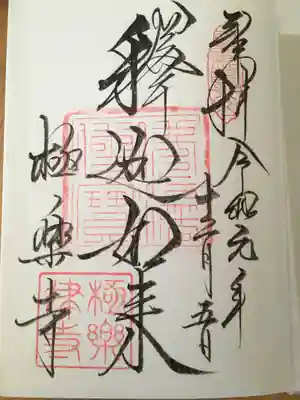 奉拝 令和元年
十二月五日
釋迦如来
極樂寺
極樂律寺